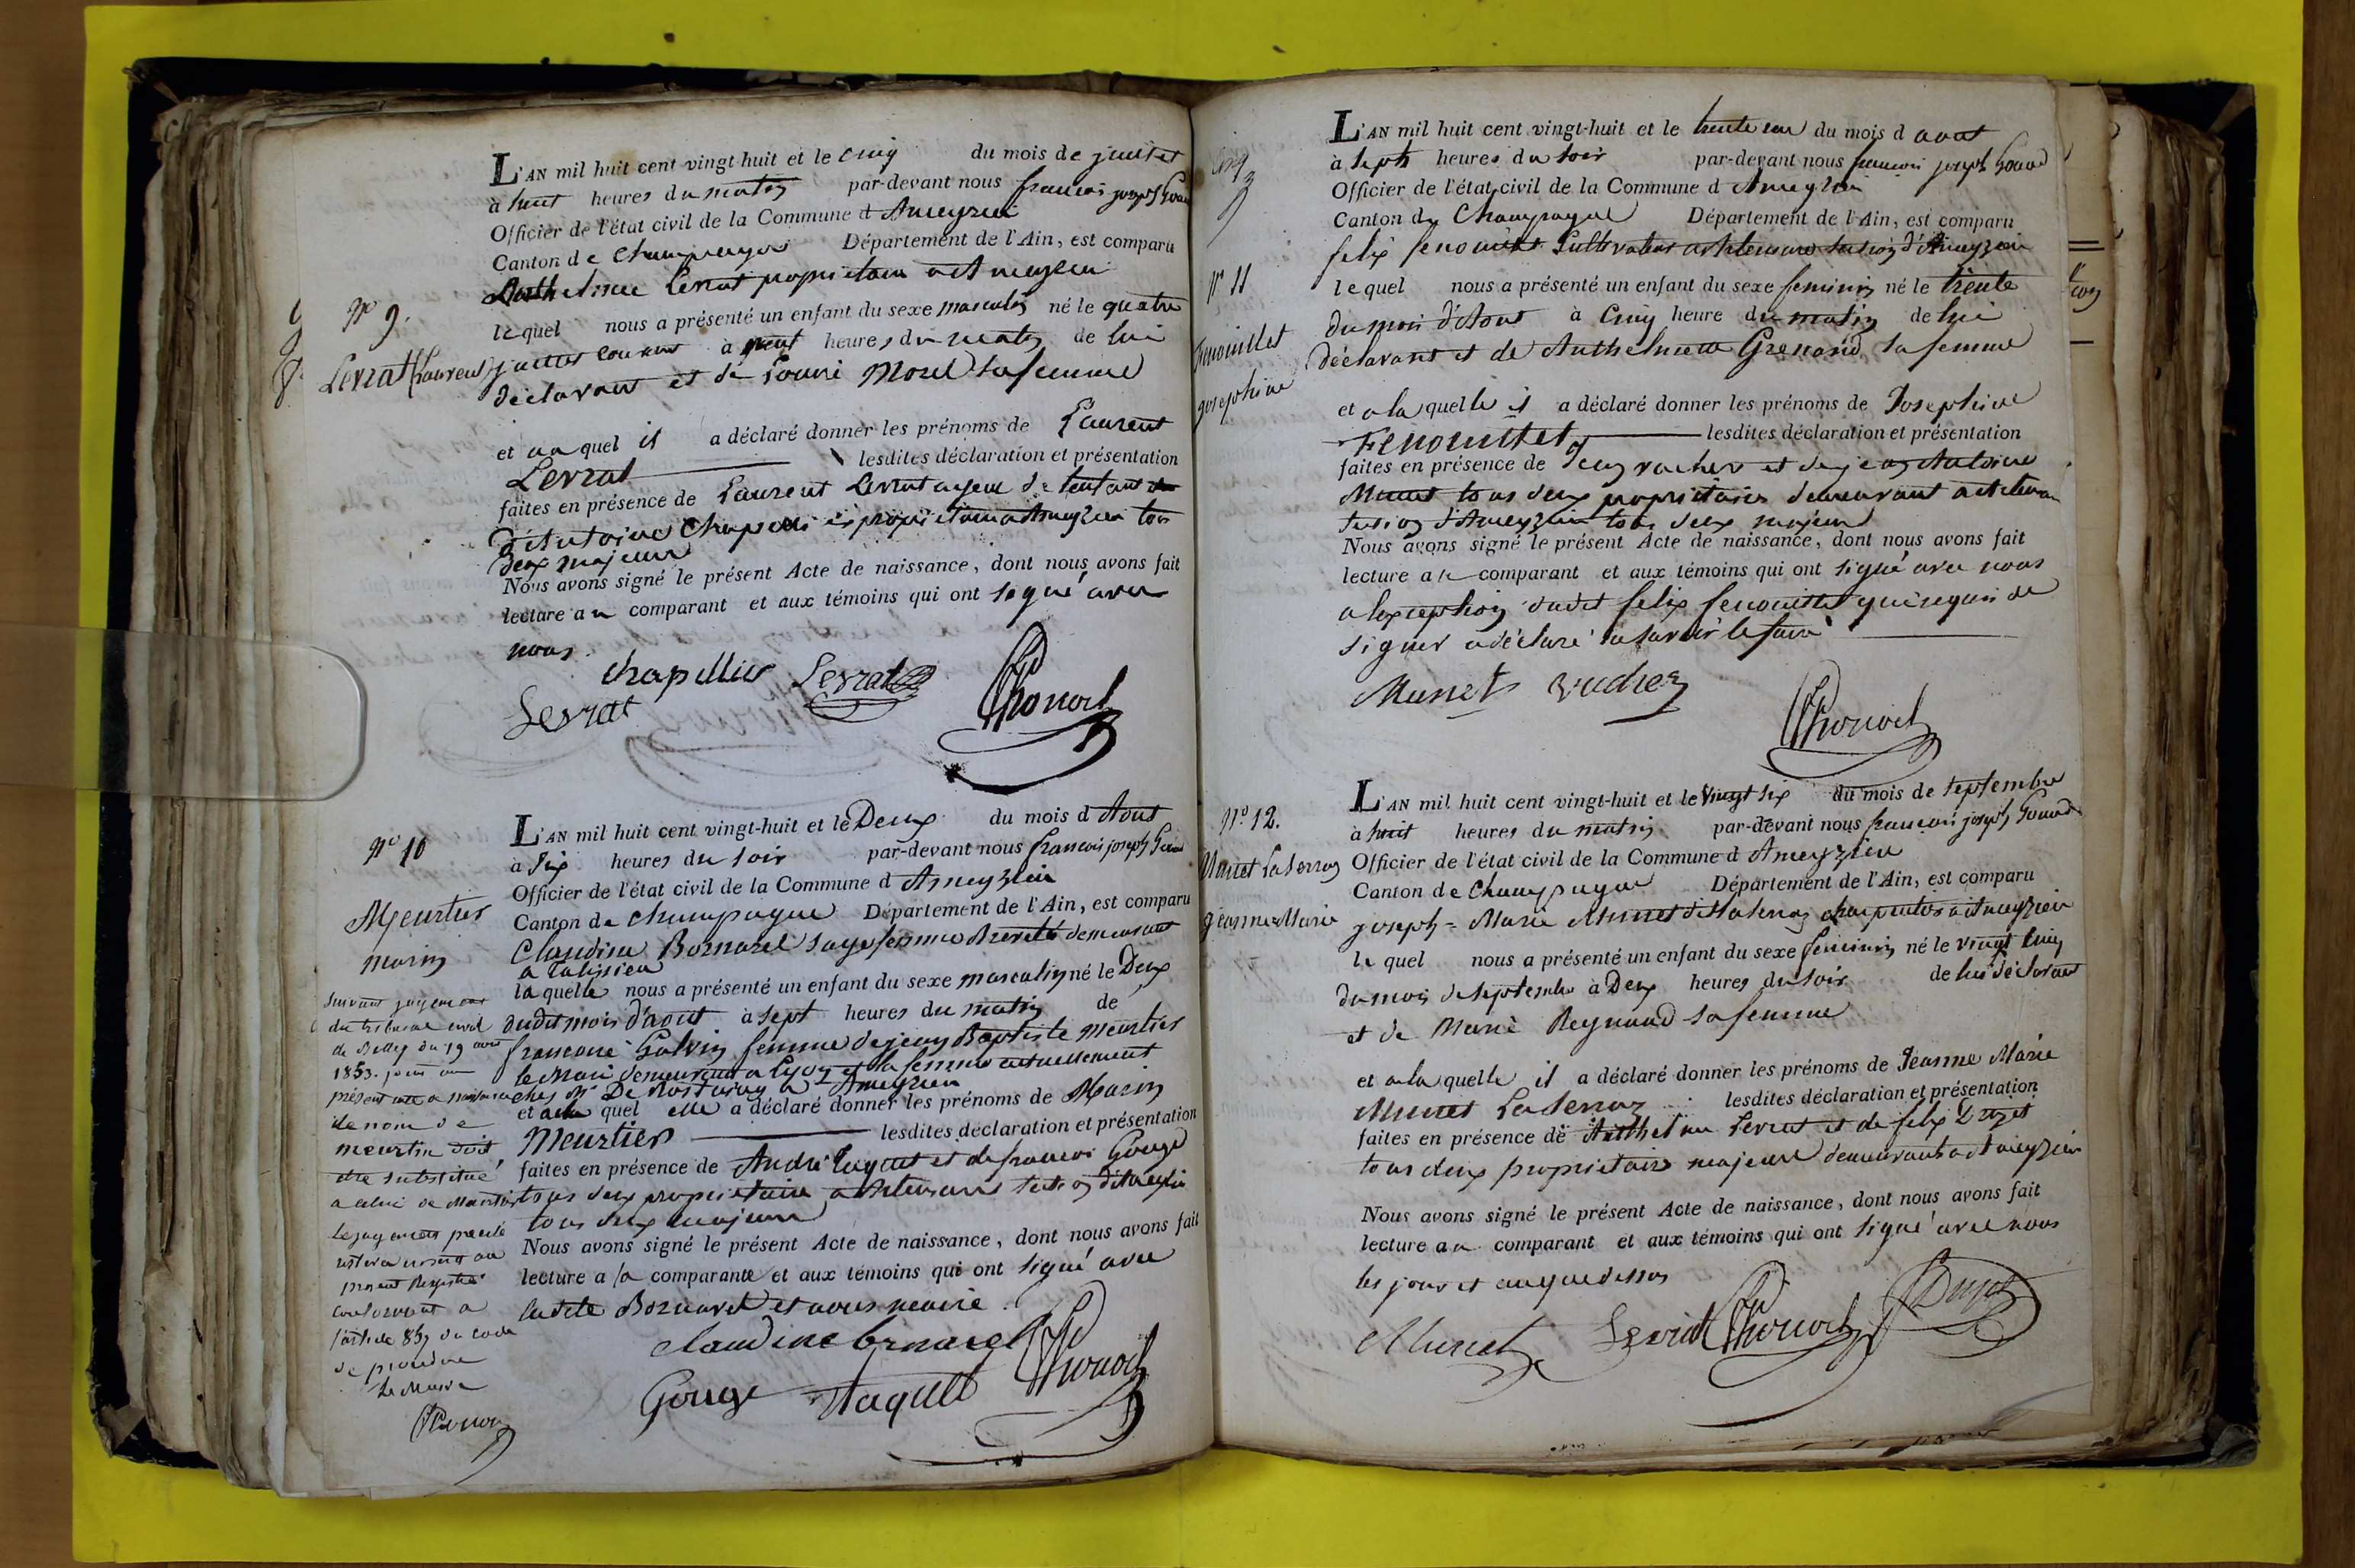 N° 9.
Levrat Laurent
L'AN mil huit cent vingt-huit et le cinq du mois de juillet
à huit heures du matin par-devant nous francois joseph
Officier de l'état civil de la Commune d Ameyzieu
Canton de Champagne Département de l'Ain, est comparu
Anthelme Levrat propriétaire a Ameyzieu
lequel nous a présenté un enfant du sexe masculin né le quatre
juillet courant à heures du matin de lui
déclarant et de Louise Morel sa femme
et au quel il a déclaré donner les prénoms de Laurent
Levrat lesdites déclaration et présentation
faites en présence de Laurent Levrat ayeul de l'enfant
d'Antoine propriétaire a Ameyzieu tous
deux majeurs
Nous avons signé le présent Acte de naissance, dont nous avons fait
lecture au comparant et aux témoins qui ont signé avec
nous.
chapellier Levrat
Levrat
N° 10
Meurtier
marin
suivant jugement
du tribunal civil
de Belley du 19 avril
1853. joint au
présent acte de naissance
le nom de
meurtin doit
etre substitué
a celui de
Le jugement précité
restera annexé au
présent Registre
conformément a
l'article 857 du code
de procédure
Le Maire
L'AN mil huit cent vingt-huit et le Deux du mois d Aout
à six heures du soir par-devant nous francois joseph
Officier de l'état civil de la Commune d Ameyzieu
Canton de Champagne Département de l'Ain, est comparu
Claudine Bornarel sage femme demeurant
a Talissieu
laquelle nous a présenté un enfant du sexe masculin né le Deux
dudit mois d'aout à sept heures du matin de
francoise Galvin femme de jean Baptiste meurtier
le Mari demeurant a Lyon et la femme actuellement
chez Mr De a Ameyzieu
et au quel elle a déclaré donner les prénoms de Marin
Meurtier lesdites déclaration et présentation
faites en présence de André taquet et de francois Gouge
tous deux propriétaire a section d'Ameyzieu
tous deux majeurs
Nous avons signé le présent Acte de naissance, dont nous avons fait
lecture a la comparante et aux témoins qui ont signé avec
ladite Bornarel et nous maire.
claudine bornarel
Gouge taquet
N° 11
Fenouillet
josephine
L'AN mil huit cent vingt-huit et le trente un du mois d aout
à sept heures du soir par-devant nous francois joseph
Officier de l'état civil de la Commune d Ameyzieu
Canton de Champagne Département de l'Ain, est comparu
felix fenouillet Cultivateur a section d'Ameyzieu
lequel nous a présenté un enfant du sexe feminin né le trente
du mois d'Aout à cinq heure du matin de lui
déclarant et de Anthelmette Grenard sa femme
et a la quelle il a déclaré donner les prénoms de Josephine
Fenouillet lesdites déclaration et présentation
faites en présence de vucher et de jean Antoine
Munet tous deux propriétaires demeurant a
section d'Ameyzieu tous deux majeurs
Nous avons signé le présent Acte de naissance, dont nous avons fait
lecture au comparant et aux témoins qui ont signé avec nous
a l'exception dudit felix fenouillet qui requis de
signer a déclaré ne savoir le faire
Munet vucher
N° 12.
Munet Laserraz
jeanne Marie
L'AN mil huit cent vingt-huit et le vingt six du mois de septembre
à huit heures du matin par-devant nous francois joseph
Officier de l'état civil de la Commune d Ameyzieu
Canton de Champagne Département de l'Ain, est comparu
joseph-Marie Munet dit Laserraz charpentier a Ameyzieu
lequel nous a présenté un enfant du sexe feminin né le vingt cinq
du mois de septembre à Deux heures du soir de lui déclarant
et de Marie Reynaud sa femme
et a la quelle il a déclaré donner les prénoms de Jeanne Marie
Munet Laserraz lesdites déclaration et présentation
faites en présence de Anthelme Levrat et de felix
tous deux propriétaires majeurs demeurants a Ameyzieu
Nous avons signé le présent Acte de naissance, dont nous avons fait
lecture au comparant et aux témoins qui ont signé avec nous
les jour et an que dessus
Munet Levrat